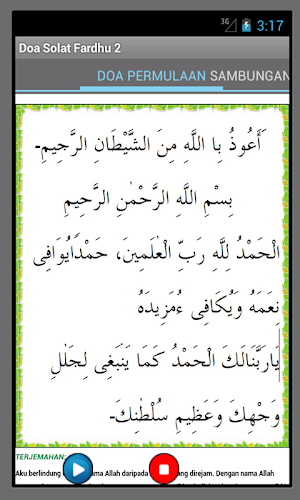 3G 3:17
Doa Solat Fardhu 2
DOA PERMULAAN SAMBUNGAN
أَعُوذُ بِا للَّهِ مِنَ الشَّيْطَانِ الرَّجِيمِ-
بِسْمِ اللَّهِ الرَّحْمٰنِ الرَّحِيمِ
الْحَمْدُ لِلَّهِ رَبِّ الْعٰلَمِينَ، حَمْدًايُوَافِى
نِعَمَهُ وَيُكَافِى ءُمَزِيدَهُ
يَارَبَّنَالَكَ الْحَمْدُ كَمَا يَنْبَغِى لِجَلٰلِ
وَجْهِكَ وَعَظِيمِ سُلْطٰنِكَ-
TERJEMAHAN:
Aku berlindung nama Allah daripada yang direjam. Dengan nama Allah